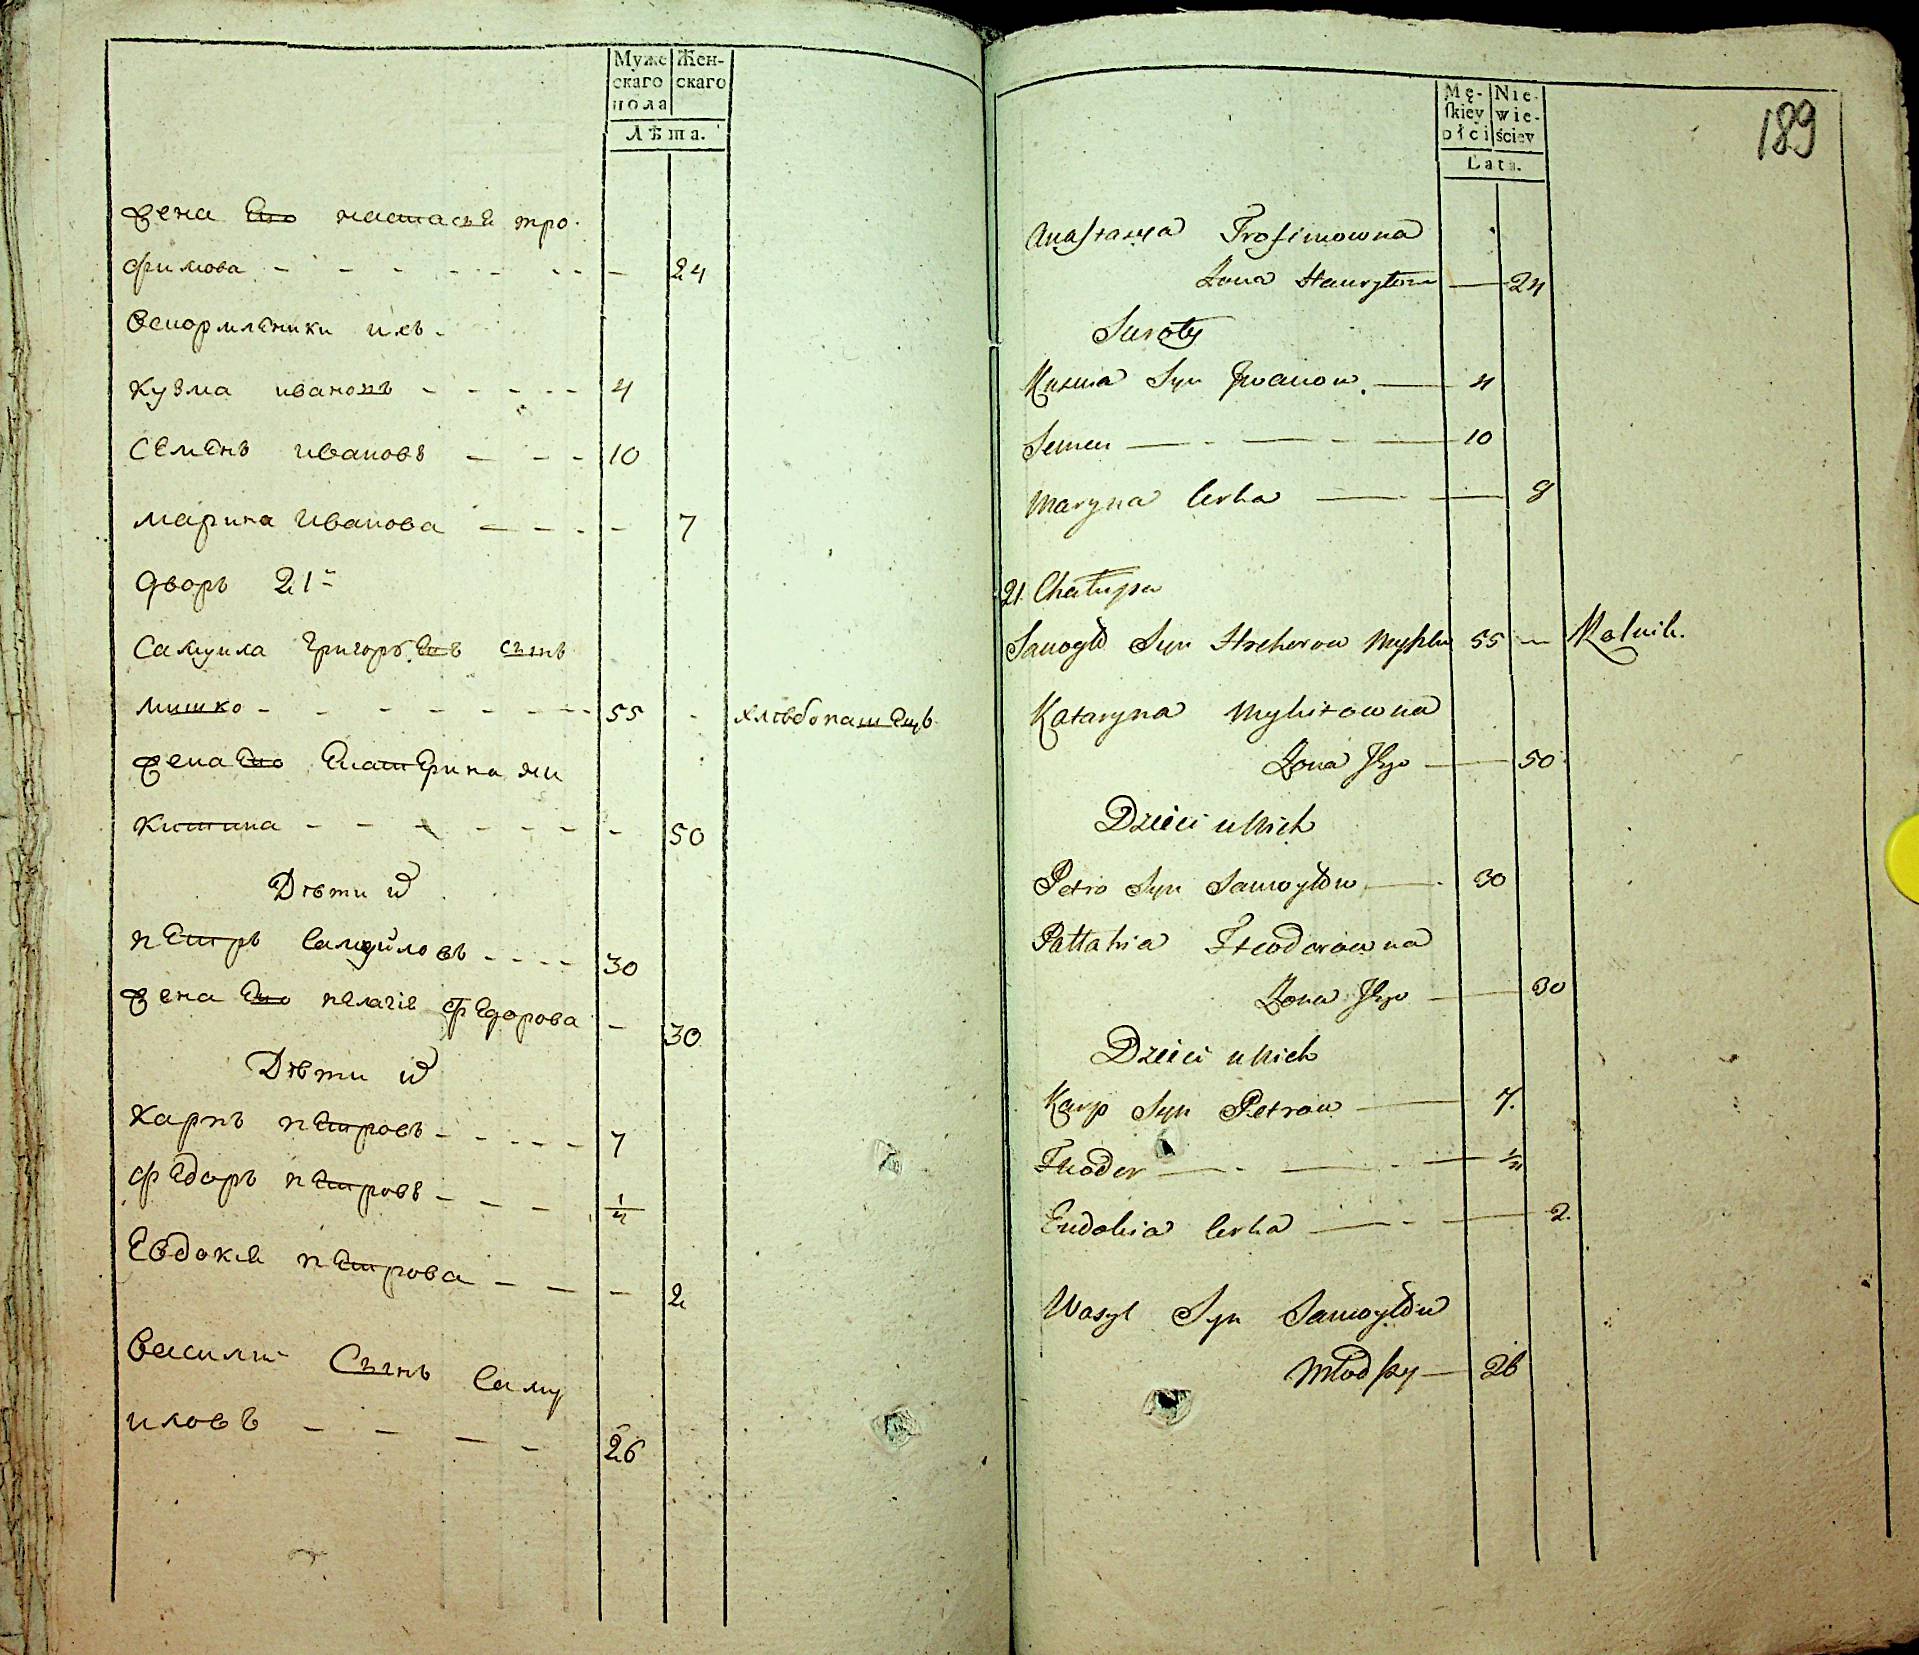 Муже
скаго
пола
Жен-
скаго
Лѣта.
жена Его настасья тро-
фимова - - - - - - - 24
Вскормлѣники ихъ.
кузма ивановъ - - - - - 4
Семенъ ивановъ - - - 10
марина Иванова - - - - 7
дворъ 21й
Самуила григорьевъ сынъ
мишко - - - - - - - - 55 - хлѣбопашецъ
жена Его Екатерина ми
китина - - - - - - - - 50
Дѣти ихъ
петръ Самуйловъ - - - - 30
жена Его пелагіе федорова - 30
Дѣти ихъ
карпъ петровъ - - - - - 7
федоръ петровъ - - - - ¼
Евдокия петрова - - - 2
василий Сынъ Саму
иловъ - - - - 26
Mę-
ſkiey
płci
Nie-
wie-
ściey
Lata.
189
Anastazya Trofimowna
Żona — 24
Suroty
Kuzma Syn Iwanow — 4
Semen — - — - — 10
Maryna Corka — — 8
21. Chałupa
Samoyło Syn Myszko 55 — Rolnik.
Kataryna Mykitowna
Żona Jego — 50
Dzieci u Nich
Petro Syn Samoyłow — 30
Pałłahia Fteodorowna
Żona Jego — 30
Dzieci u Nich
Karp Syn Petrow — 7.
Fteodor — - — - — ¼
Eudokia Corka — - — 2.
Wasyl Syn Samoyłow
Młodszy — 26